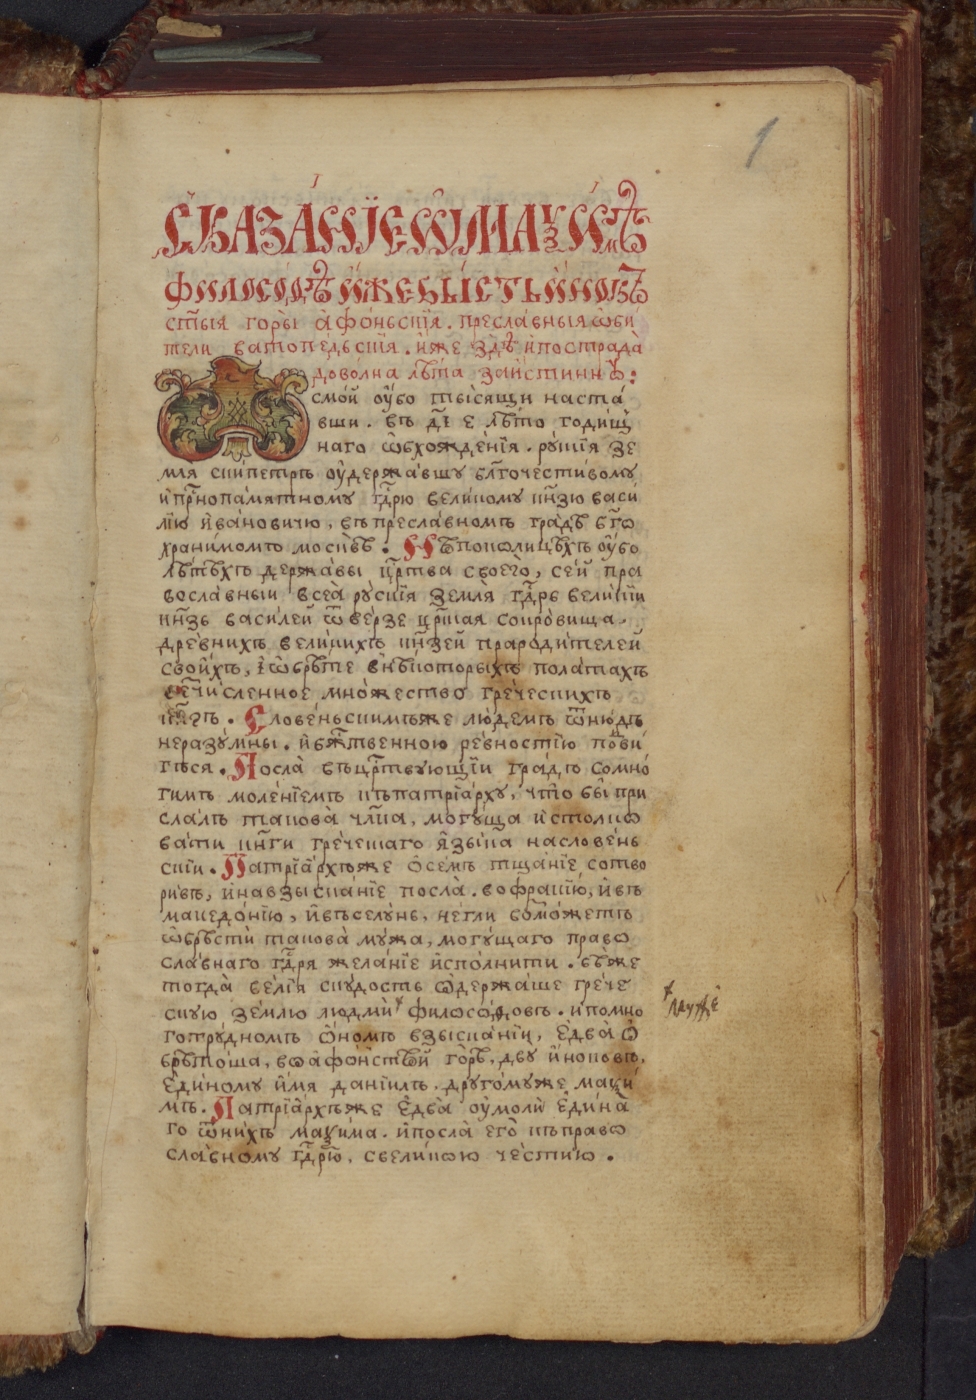 1
Сказа́нїе ѡ ма́ѯимѣ
филосо́фѣ и́же бы́сть и́нокъ
ст҃ы́я горы̀ а҆фо́ньскїѧ. пресла́вныѧ ѡ҆би
тели ватопе́дьскїѧ. и҆́же здѣ̀ и҆пострада̀
дово́лна лѣ́та заи҆́стиннꙋ:
смо́й ᲂу҆́бо ты́сящи наста́
вши. въ д҃і е лѣ́то годищ
наго ѡ҆бхожде́нїя. рꙋ́скїя зе
мля ски́петръ ᲂу҆держа́вшꙋ бл҃гочести́вомꙋ
и҆ пр҇нопа́мятномꙋ гд҇рю вели́комꙋ кн҃зю васи
лїю и҆ва́новичю, въ пресла́вномъ гра́дѣ бг҃о
храни́момъ москвѣ̀. Въ поко́лицѣхъ ᲂу҆́бо
лѣ́тѣхъ держа́вы цр҇тва своего̀, се́й пра
восла́вный всеѧ̀ рꙋ́скїя землѧ̀ гд҇рь вели́кїи
кн҃зь васи́лей ѿве́рзе цр҇кая сокро́вища.
дре́внихъ вели́кихъ кн҃зей прароди́телей
свои́хъ, и҆ѡ҆брѣ́те в нѣ́которыхъ пола́тахъ
безчи́сленное мно́жество гре́ческихъ
кн҃гъ. Слове́ньскимъже лю́демъ ѿню́дь
неразꙋ́мны. и҆ бж҇твенною ре́вностїю подви́
гъся. Посла̀ въ цр҇твꙋющїи гра́дъ со мно́
гимъ моле́нїемъ къ патрїа́рхꙋ, что̀ бы при
сла́лъ такова̀ чл҃ка, могꙋ́ща и҆столко
ва́ти кн҃ги гре́ческаго я҆зы́ка на слове́нь
скїи. Патрїа́рхъже ѻ҆ се́мъ тща́нїе сотво
ри́въ, и҆ на взыска́нїе посла̀. во фра́кїю, и҆ въ
македо́нїю, и҆ въ селꙋ́нь, не́гли возмо́жетъ
ѡ҆брѣстѝ такова̀ мꙋ́жа, могꙋ́щаго право
сла́внаго гд҇ря жела́нїе и҆спо́лнити. бѣ́же
тогда̀ ве́лїя скꙋ́дость ѡ҆держа́ше гре́че
скꙋю зе́млю людмѝ филосо́фовъ. и҆ по мно
готрꙋ́дномъ ѻ҆́номъ взыска́нїи, є҆два̀ ѡ҆
брѣто́ша, во а҆фо́нстѣй го́рѣ, двꙋ̀ и҆́ноковъ,
є҆ди́номꙋ и҆́мя данїи́лъ. дрꙋго́мꙋже маѯи́
мъ. Патрїа́рхъже є҆два̀ ᲂу҆молѝ є҆ди́на
го ѿ ни́хъ маѯи́ма. и҆ посла̀ его̀ къ право
сла́вномꙋ гд҇рю, с вели́кою че́стїю.